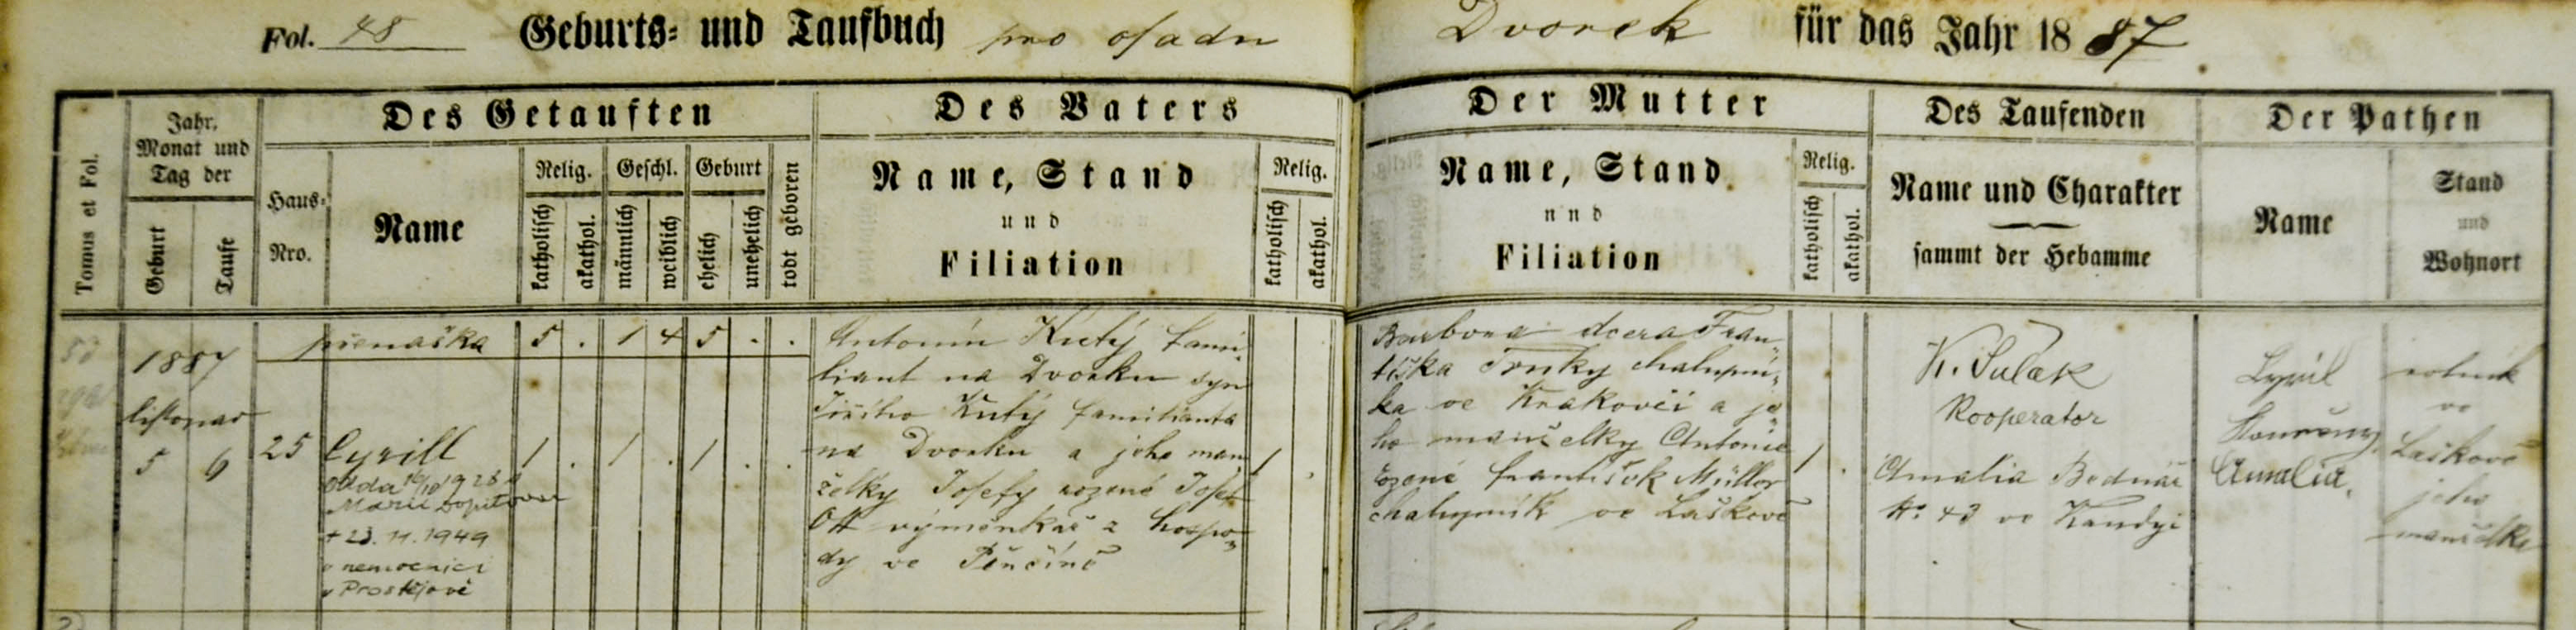 Fol. 48 Geburts- und Taufbuch pro osadu Dvorek für das Jahr 1887
Tomus et Fol.
Jahr, Monat und Tag der
Geburt
Taufe
Des Getauften
Haus-Nro.
Name
Relig.
katholisch
akathol.
Geschl.
männlich
weiblich
Geburt
ehelich
unehelich
todt geboren
Des Vaters
Name, Stand
und
Filiation
Relig.
katholisch
akathol.
Der Mutter
Name, Stand
und
Filiation
Relig.
katholisch
akathol.
Des Taufenden
Name und Charakter
sammt der Hebamme
Der Pathen
Name
Stand
und
Wohnort
přenáška 5 . 1 4 5 . .
1887
listopad
5 6
25 Cyrill 1 . 1 . 1 . .
16/10 1928
Marií
† 23. 11. 1949
v nemocnici
v Prostějově
Antonín Kutý fami-
liant na Dvorku syn
Jiřího Kutý familianta
na Dvorku a jeho man-
želky Josefy rozené Josef
Ott výměnkář z hospo-
dy ve Pěnčíně
1 .
Barbora dcera Fran-
tiška chalupní-
ka ve Krakovči a je-
ho manželky Antonie
rozené František Müller
chalupník ve Laškově
1 .
Kooperator
Amalia Bednář
N° 43 ve Kandyi
Cyrill
Amalia,
rolník
ve
Laškově
jeho
manželka